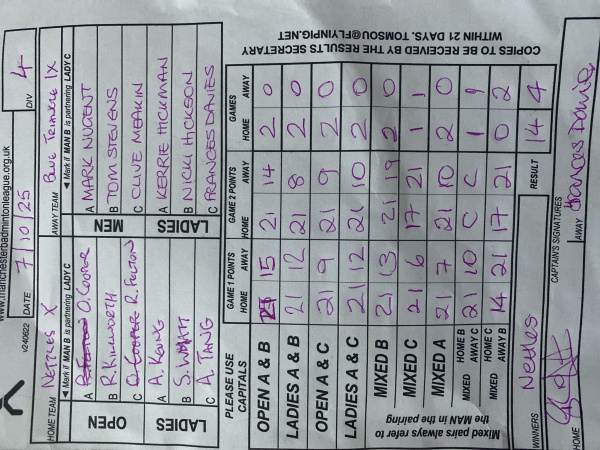 www.manchesterbadmintonleague.org.uk
v240622 DATE 7/10/25 DIV 4
HOME TEAM NETTLES X AWAY TEAM BLUE TRIANGLE IX
◄ Mark if MAN B is partnering LADY C ◄ Mark if MAN B is partnering LADY C
OPEN MEN
A O. COOPER A MARK NUGENT
B R. KILWORTH B TOM STEVENS
C R. FELTON C CLIVE MEAKIN
LADIES LADIES
A A. KONG A KERRIE HICKMAN
B S. WYATT B NICKI HICKSON
C A. TANG C FRANCES DAVIES
PLEASE USE CAPITALS GAME 1 POINTS GAME 2 POINTS GAMES
HOME AWAY HOME AWAY HOME AWAY
OPEN A & B 21 15 21 14 2 0
LADIES A & B 21 12 21 8 2 0
OPEN A & C 21 9 21 9 2 0
LADIES A & C 21 12 21 10 2 0
MIXED B 21 13 21 19 2 0
MIXED C 21 6 17 21 1 1
MIXED A 21 7 21 10 2 0
MIXED HOME B AWAY C 21 10 C C 1 1
MIXED HOME C AWAY B 14 21 17 21 0 2
Mixed pairs always refer to the MAN in the pairing
WINNERS Nettles RESULT 14 4
CAPTAIN'S SIGNATURES
HOME AWAY Frances Davies
COPIES TO BE RECEIVED BY THE RESULTS SECRETARY
WITHIN 21 DAYS. TOMSOU@FLYINPIG.NET